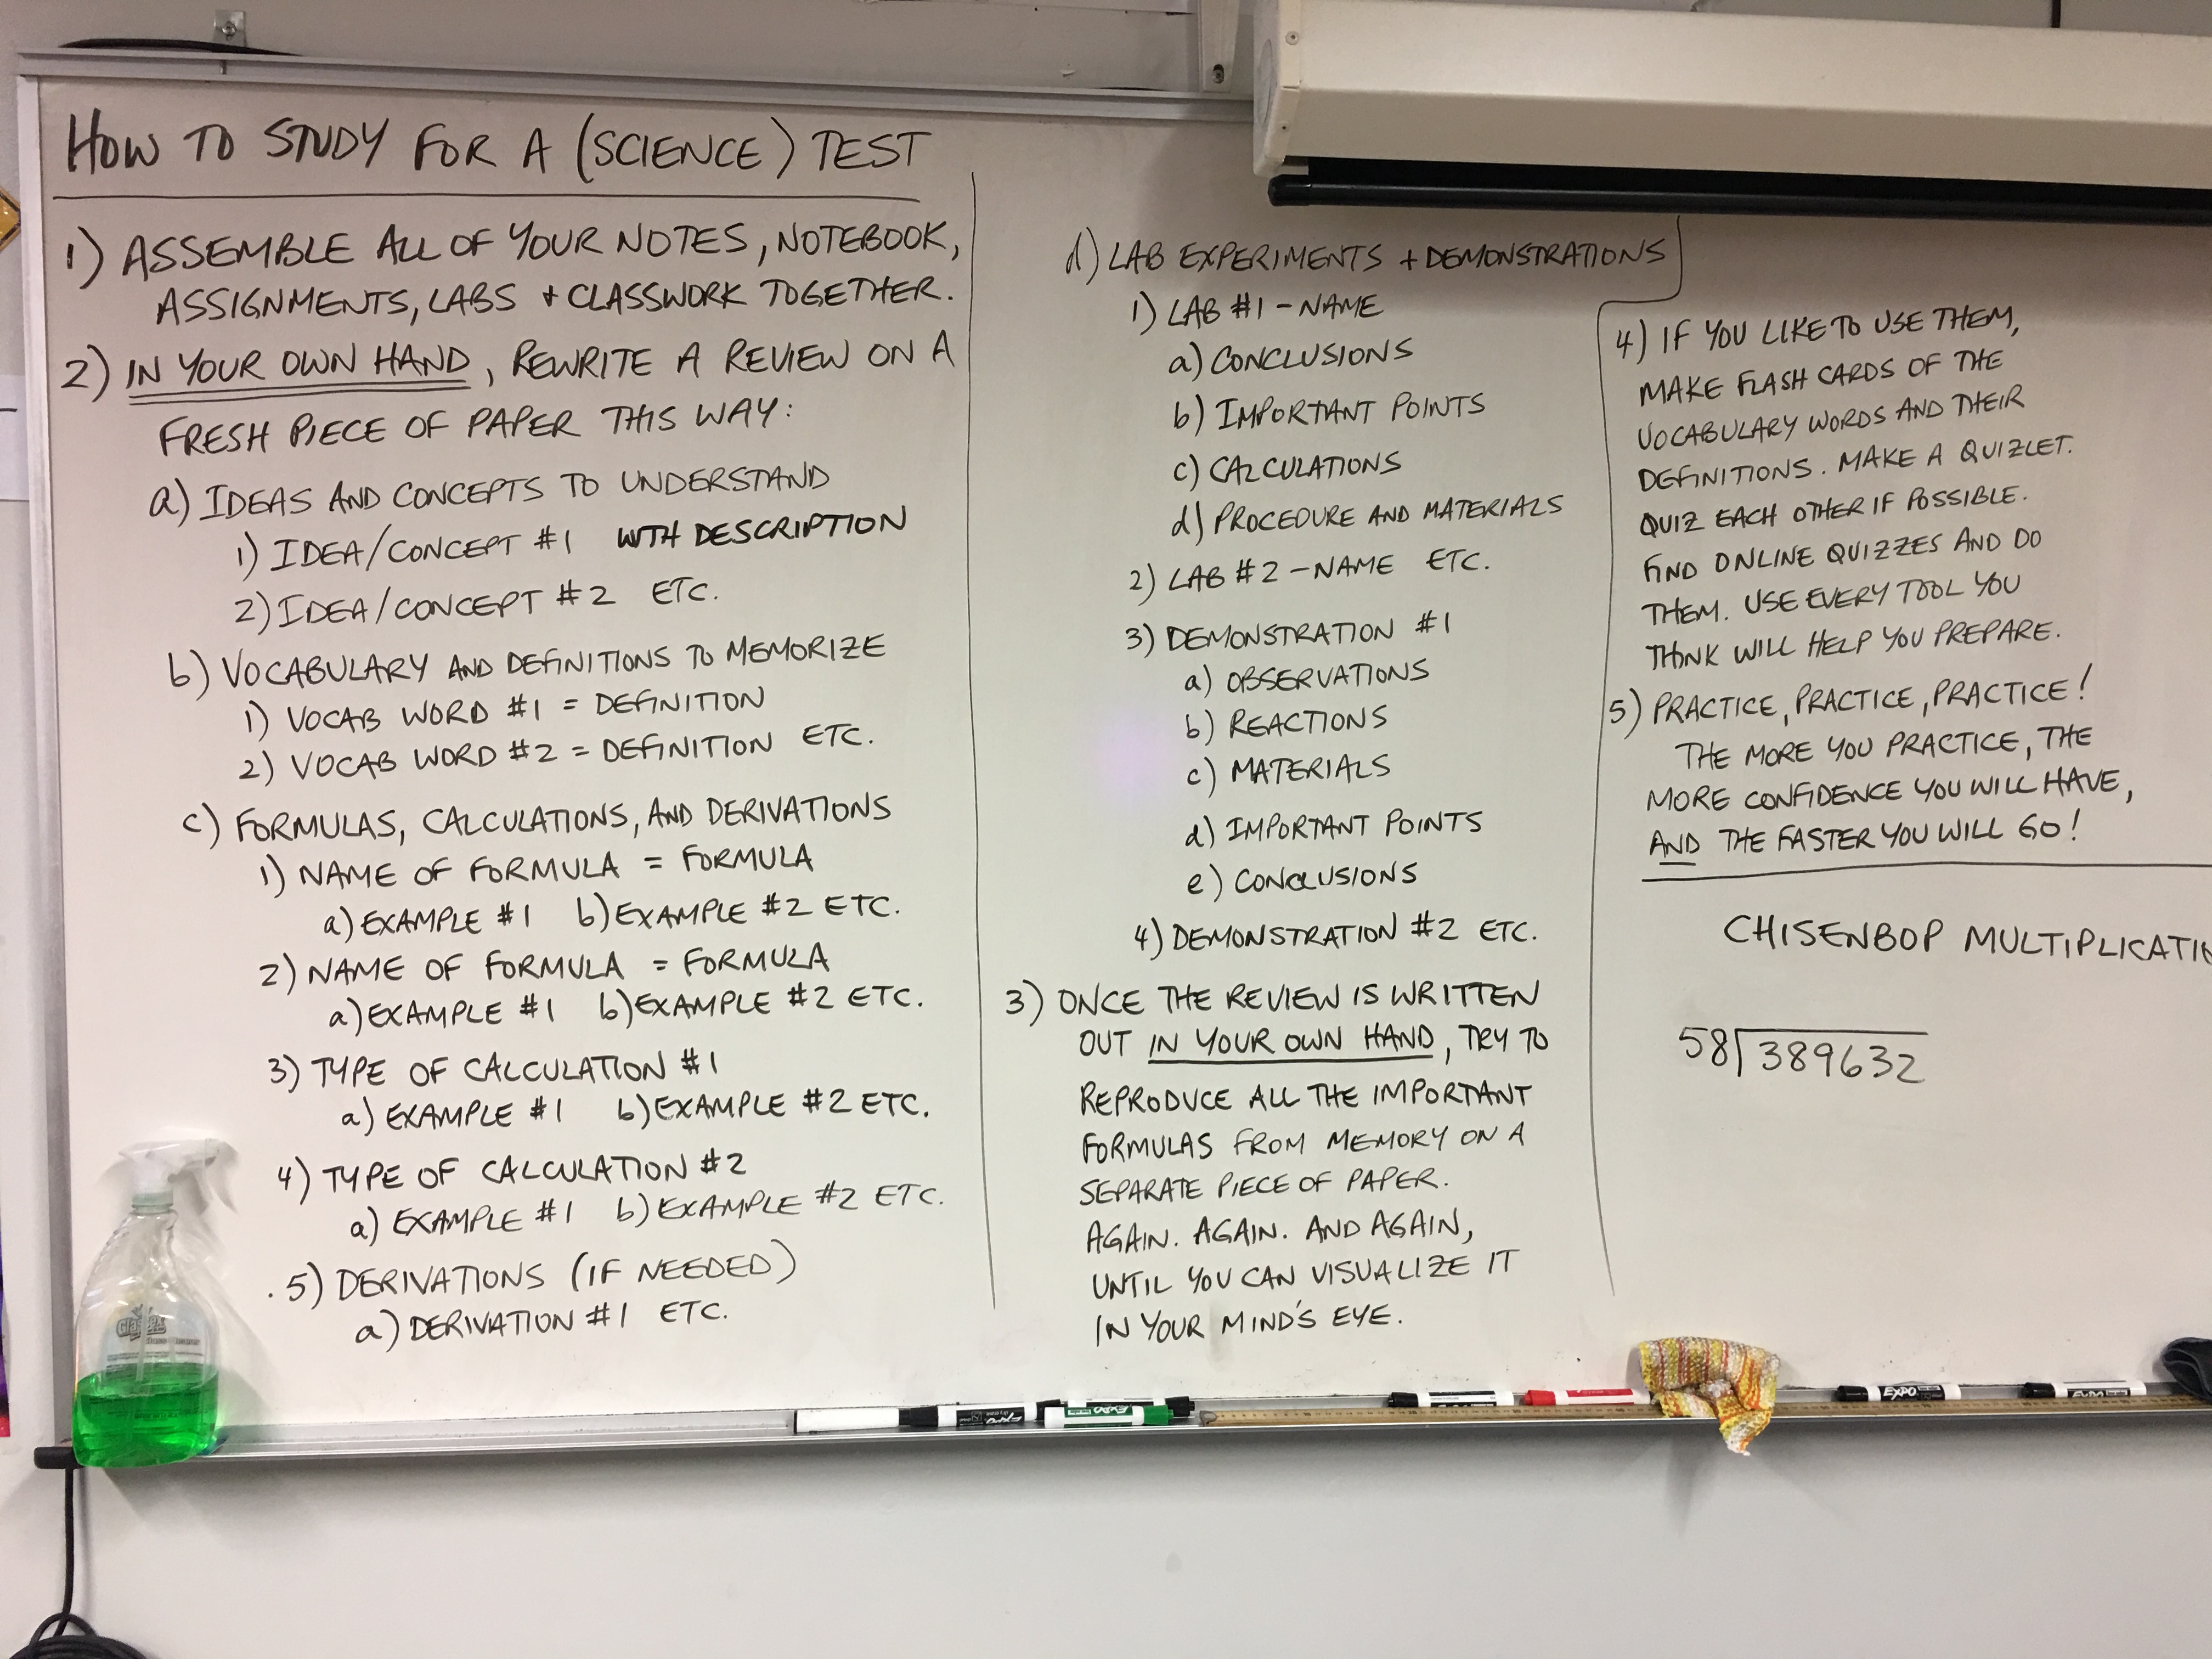 HOW TO STUDY FOR A (SCIENCE) TEST
1) ASSEMBLE ALL OF YOUR NOTES, NOTEBOOK,
ASSIGNMENTS, LABS + CLASSWORK TOGETHER.
2) IN YOUR OWN HAND, REWRITE A REVIEW ON A
FRESH PIECE OF PAPER THIS WAY:
a) IDEAS AND CONCEPTS TO UNDERSTAND
1) IDEA/CONCEPT #1 WITH DESCRIPTION
2) IDEA/CONCEPT #2 ETC.
b) VOCABULARY AND DEFINITIONS TO MEMORIZE
1) VOCAB WORD #1 = DEFINITION
2) VOCAB WORD #2 = DEFINITION ETC.
c) FORMULAS, CALCULATIONS, AND DERIVATIONS
1) NAME OF FORMULA = FORMULA
a) EXAMPLE #1 b) EXAMPLE #2 ETC.
2) NAME OF FORMULA = FORMULA
a) EXAMPLE #1 b) EXAMPLE #2 ETC.
3) TYPE OF CALCULATION #1
a) EXAMPLE #1 b) EXAMPLE #2 ETC.
4) TYPE OF CALCULATION #2
a) EXAMPLE #1 b) EXAMPLE #2 ETC.
5) DERIVATIONS (IF NEEDED)
a) DERIVATION #1 ETC.
d) LAB EXPERIMENTS + DEMONSTRATIONS
1) LAB #1 - NAME
a) CONCLUSIONS
b) IMPORTANT POINTS
c) CALCULATIONS
d) PROCEDURE AND MATERIALS
2) LAB #2 - NAME ETC.
3) DEMONSTRATION #1
a) OBSERVATIONS
b) REACTIONS
c) MATERIALS
d) IMPORTANT POINTS
e) CONCLUSIONS
4) DEMONSTRATION #2 ETC.
3) ONCE THE REVIEW IS WRITTEN
OUT IN YOUR OWN HAND, TRY TO
REPRODUCE ALL THE IMPORTANT
FORMULAS FROM MEMORY ON A
SEPARATE PIECE OF PAPER.
AGAIN. AGAIN. AND AGAIN,
UNTIL YOU CAN VISUALIZE IT
IN YOUR MIND'S EYE.
4) IF YOU LIKE TO USE THEM,
MAKE FLASH CARDS OF THE
VOCABULARY WORDS AND THEIR
DEFINITIONS. MAKE A QUIZLET.
QUIZ EACH OTHER IF POSSIBLE.
FIND ONLINE QUIZZES AND DO
THEM. USE EVERY TOOL YOU
THINK WILL HELP YOU PREPARE.
5) PRACTICE, PRACTICE, PRACTICE!
THE MORE YOU PRACTICE, THE
MORE CONFIDENCE YOU WILL HAVE,
AND THE FASTER YOU WILL GO!
CHISENBOP MULTIPLICATI
58 389632
EXPO
EXPO
EXPO
EXPO